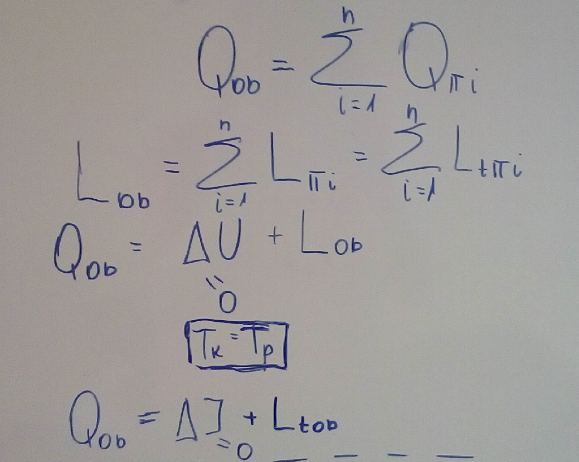 Q_ob = Σ_{i=1}^{n} Q_{πi}
L_ob = Σ_{i=1}^{n} L_{πi} = Σ_{i=1}^{n} L_{tπi}
Q_ob = ΔU + L_ob
"0
T_K = T_p
Q_ob = ΔJ + L_tob
=0